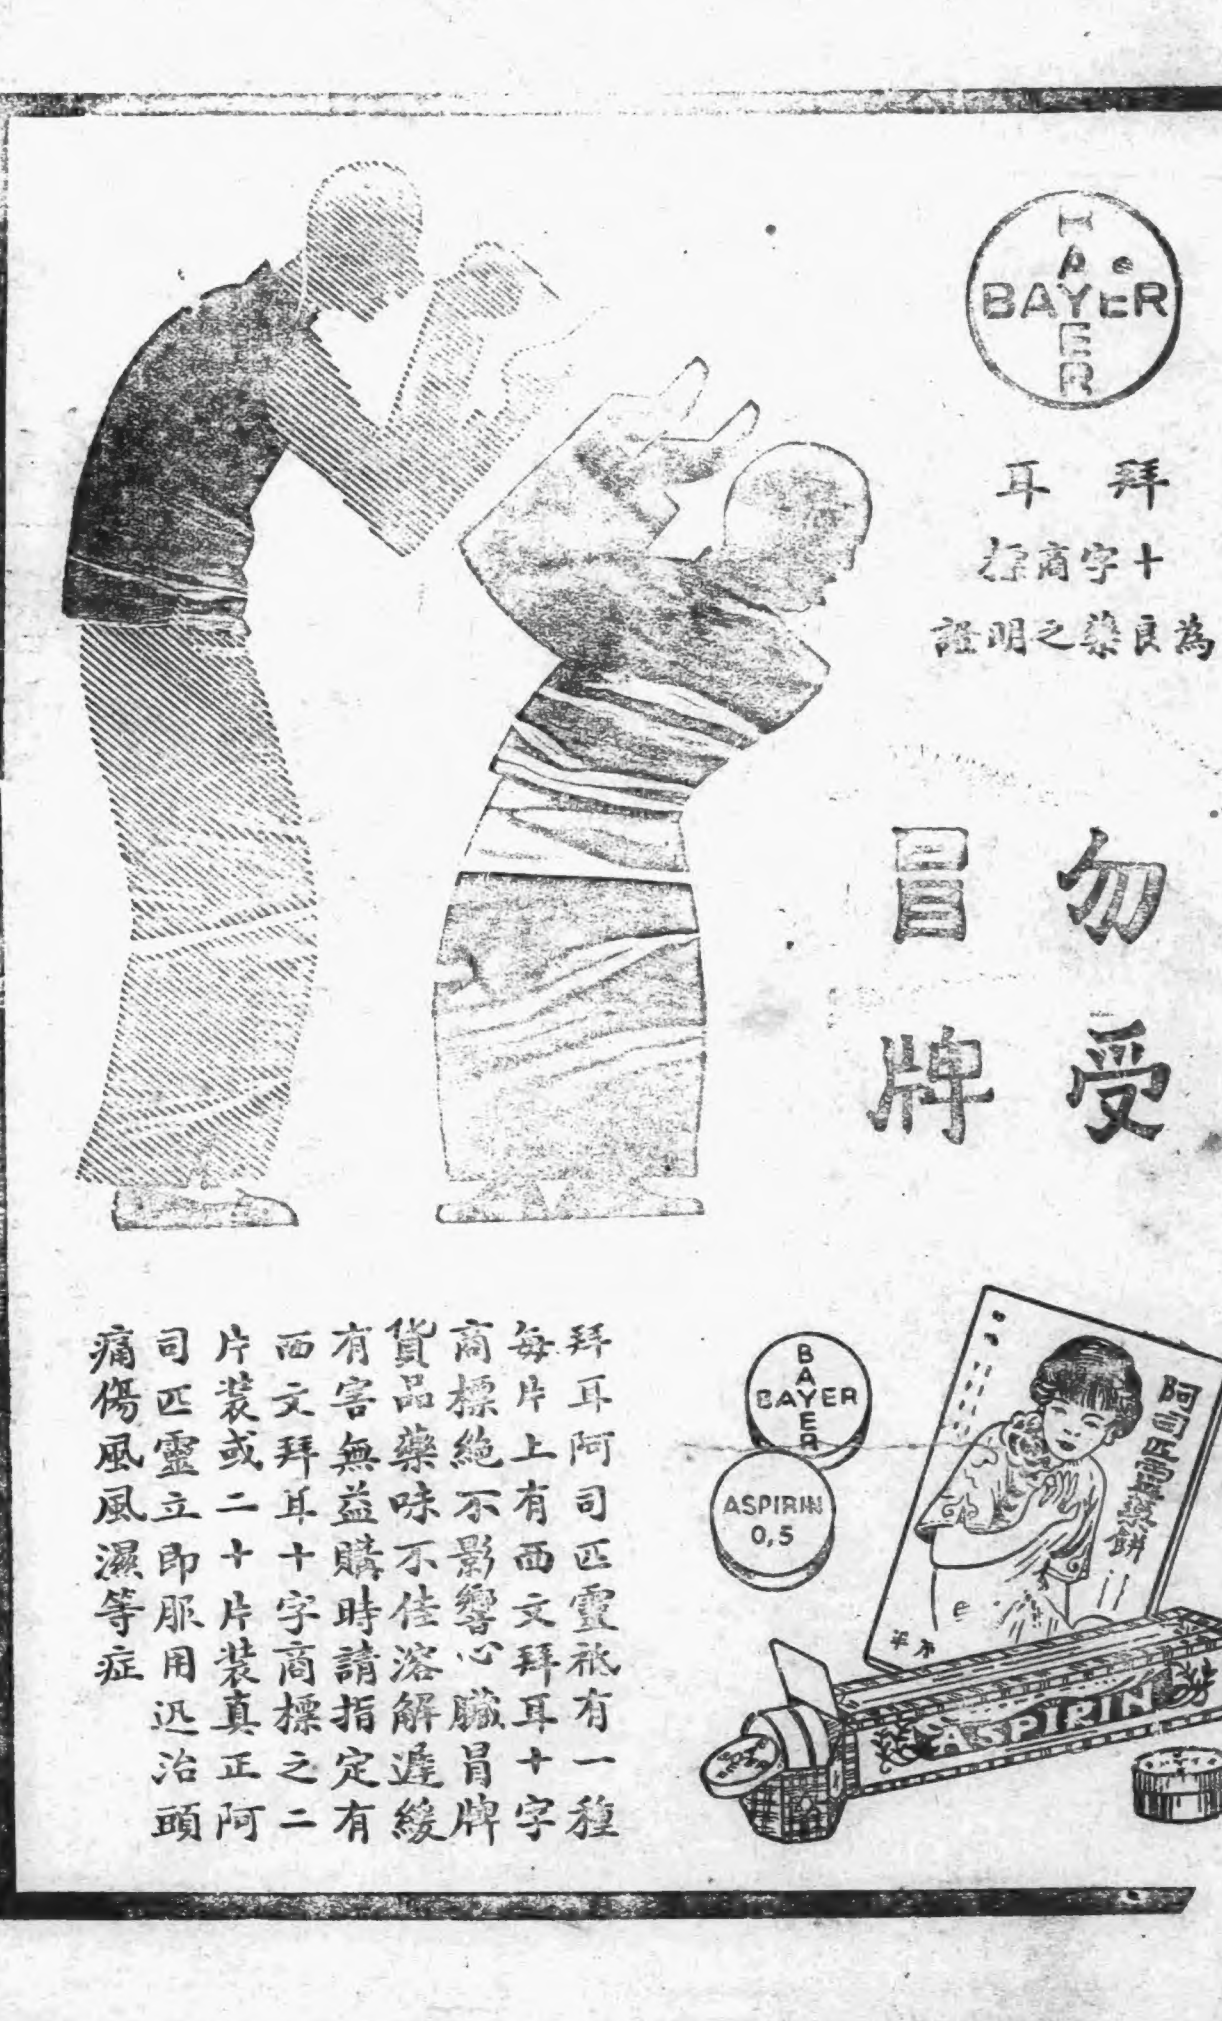 BAYER
BAYER
拜耳
十字商標
為良藥之明證
勿受
冒牌
BAYER
BAYER
ASPIRIN
0,5
阿司匹靈藥餅
ASPIRIN
拜耳阿司匹靈祇有一種
每片上有西文拜耳十字
商標絶不影響心臟冒牌
貨品藥味不佳溶解遲緩
有害無益購時請指定有
西文拜耳十字商標之二
片裝或二十片裝真正阿
司匹靈立即服用迅治頭
痛傷風風濕等症